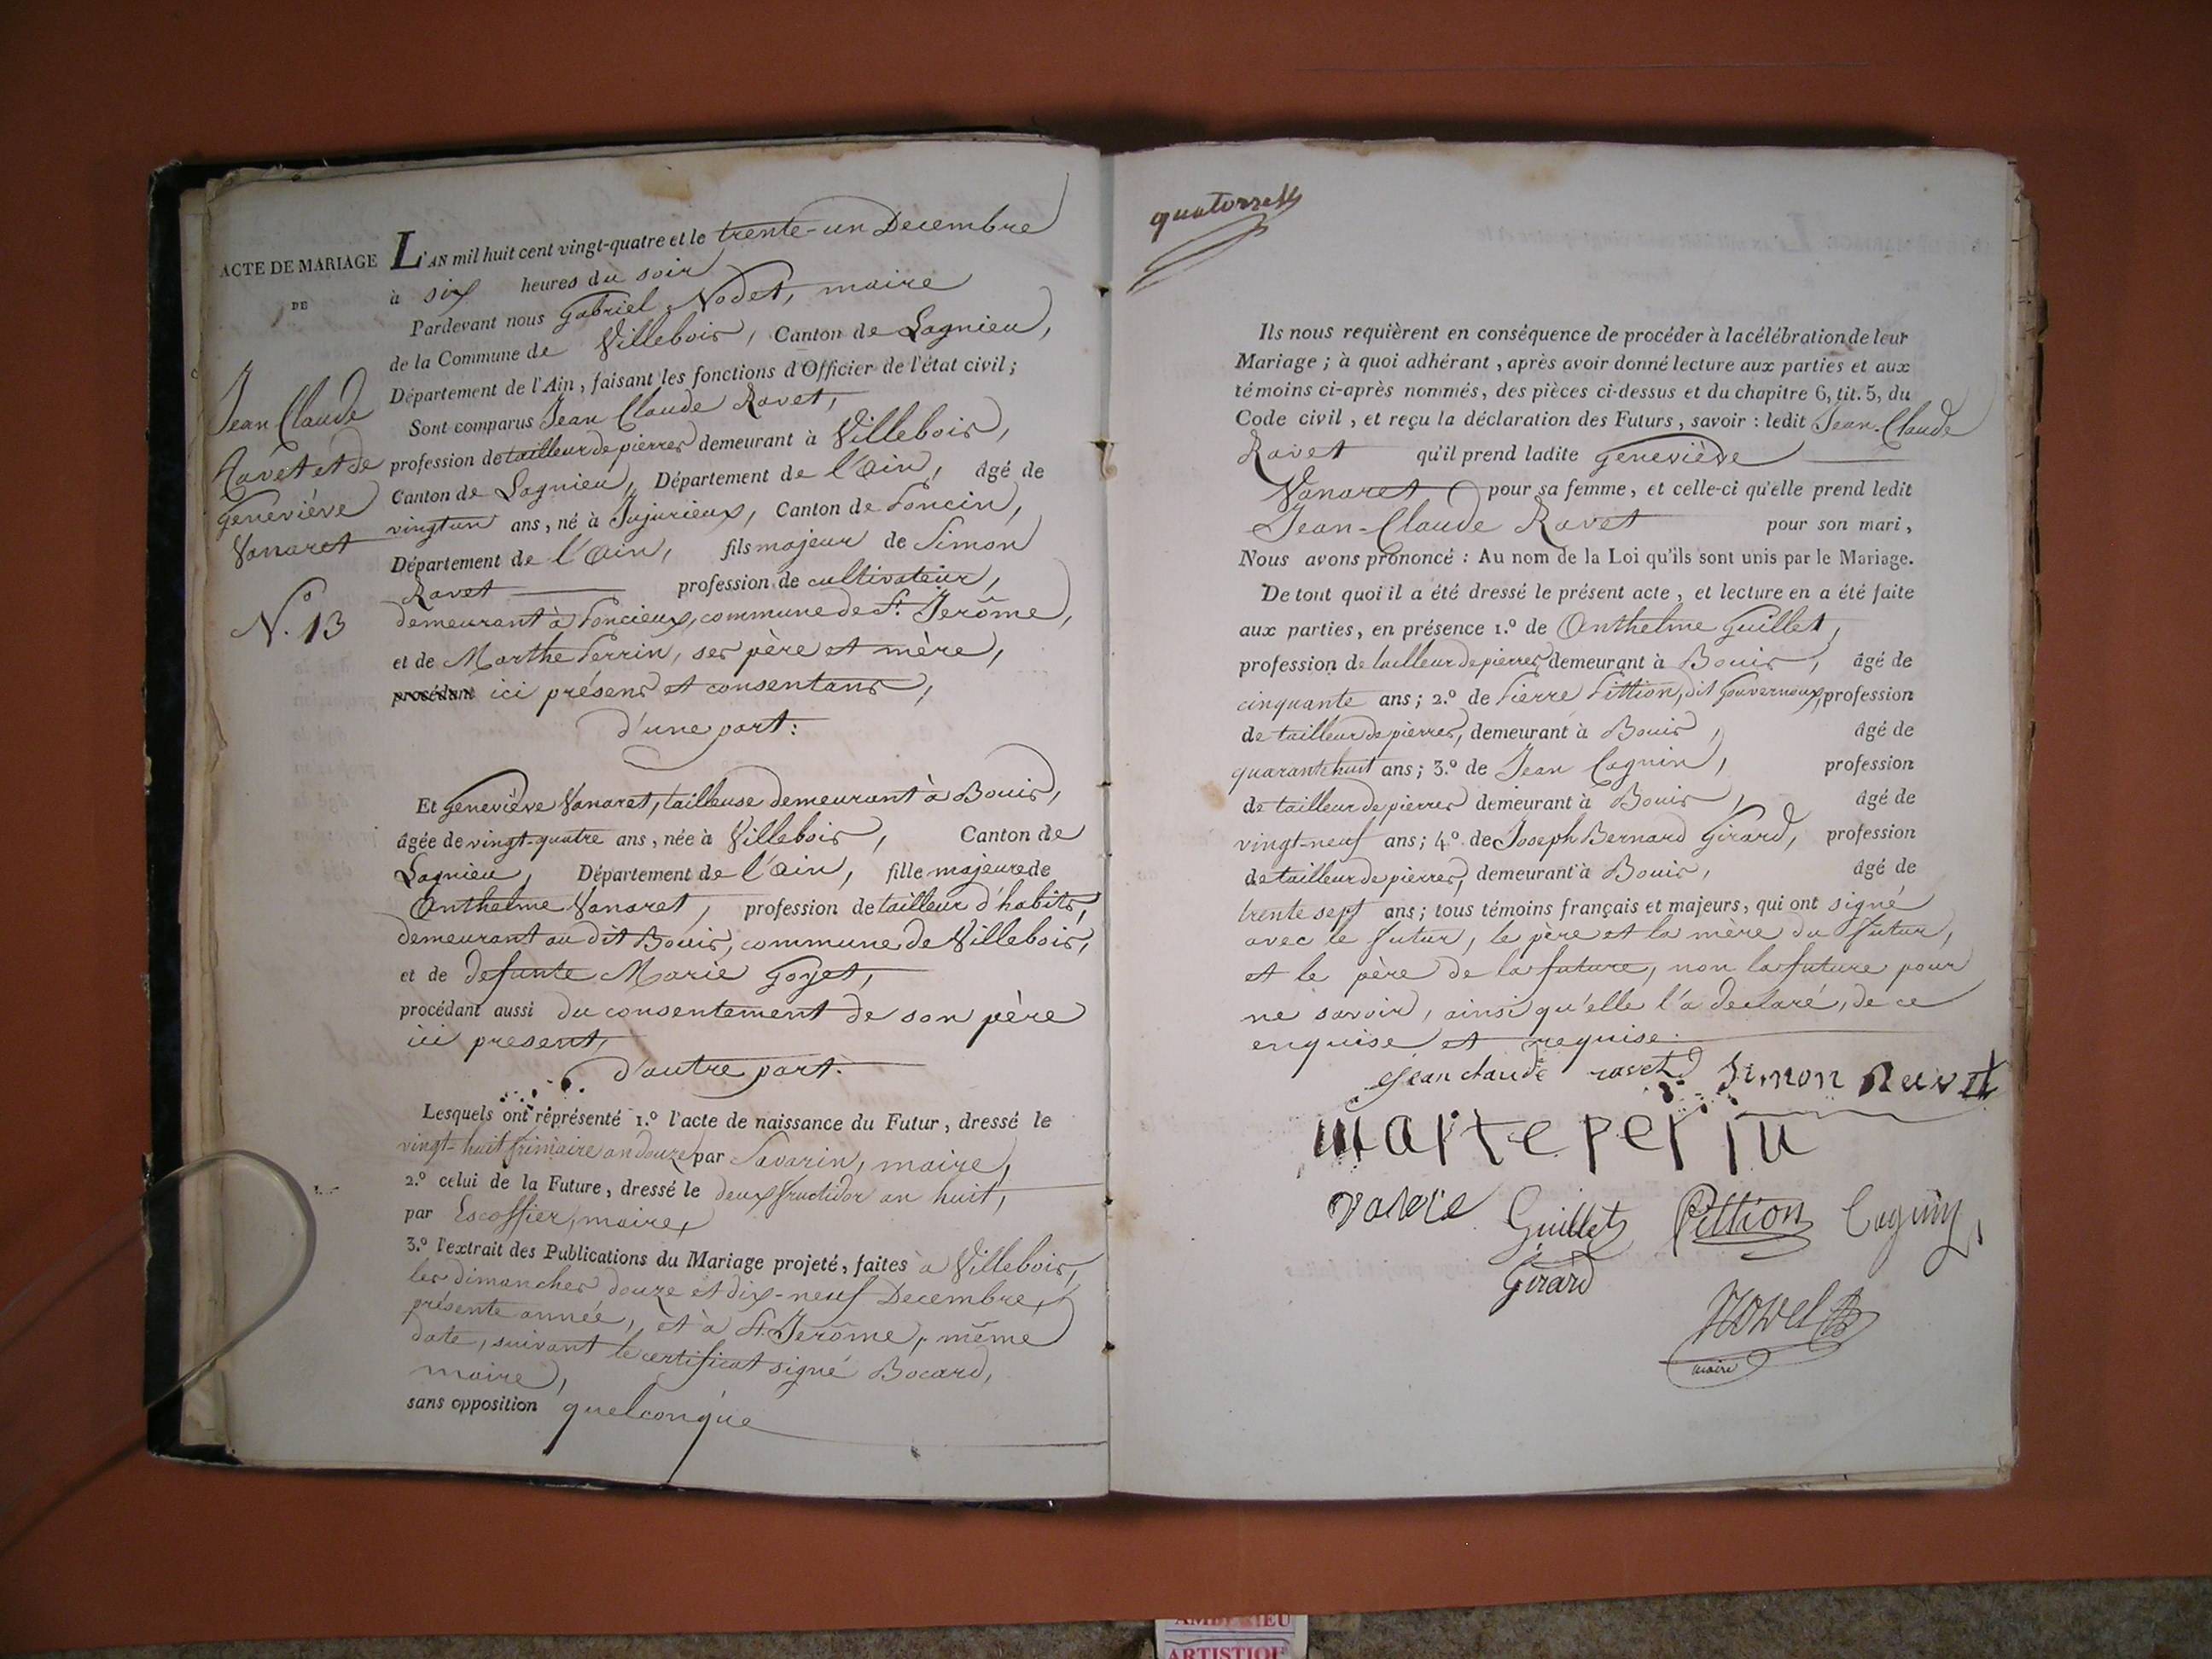 ACTE DE MARIAGE
DE
Jean Claude
Ravet et de
Geneviève
Vanaret
N.° 13
L'AN mil huit cent vingt-quatre et le trente-un Decembre
à six heures du soir
Pardevant nous Gabriel Nodet, maire
de la Commune de Villebois, Canton de Lagnieu,
Département de l'Ain, faisant les fonctions d'Officier de l'état civil;
Sont comparus Jean Claude Ravet,
profession de tailleur de pierres demeurant à Villebois,
Canton de Lagnieu, Département de l'Ain, âgé de
vingt un ans, né à Jujurieux, Canton de Poncin,
Département de l'Ain, fils majeur de Simon
Ravet profession de cultivateur,
demeurant à Poncieux, commune de St. Jerôme,
et de Marthe Perrin, ses père et mère,
procédant ici présens et consentans,
d'une part:
Et Geneviève Vanaret, tailleuse demeurant à Bouis,
âgée de vingt-quatre ans, née à Villebois, Canton de
Lagnieu, Département de l'Ain, fille majeure de
Anthelme Vanaret, profession de tailleur d'habits,
demeurant au dit Bouis, commune de Villebois,
et de defunte Marie Goyet,
procédant aussi du consentement de son père
ici present,
d'autre part.
Lesquels ont représenté 1.° l'acte de naissance du Futur, dressé le
vingt-huit frimaire an douze par Savarin, maire,
2.° celui de la Future, dressé le deux fructidor an huit,
par Escoffier, maire,
3.° l'extrait des Publications du Mariage projeté, faites à Villebois,
les dimanches douze et dix-neuf Decembre,
présente année, et à St. Jerôme, même
date, suivant le certificat signé Bocard,
maire,
sans opposition quelconque
quatorze
Ils nous requièrent en conséquence de procéder à la célébration de leur
Mariage; à quoi adhérant, après avoir donné lecture aux parties et aux
témoins ci-après nommés, des pièces ci-dessus et du chapitre 6, tit. 5, du
Code civil, et reçu la déclaration des Futurs, savoir: ledit Jean-Claude
Ravet qu'il prend ladite Geneviève
Vanaret pour sa femme, et celle-ci qu'elle prend ledit
Jean-Claude Ravet pour son mari,
Nous avons prononcé: Au nom de la Loi qu'ils sont unis par le Mariage.
De tout quoi il a été dressé le présent acte, et lecture en a été faite
aux parties, en présence 1.° de Anthelme Guillet,
profession de tailleur de pierres, demeurant à Bouis, âgé de
cinquante ans; 2.° de Pierre Pittion, dit Gouverneux, profession
de tailleur de pierres, demeurant à Bouis, âgé de
quarante huit ans; 3.° de Jean Cagnin, profession
de tailleur de pierres demeurant à Bouis, âgé de
vingt-neuf ans; 4.° de Joseph Bernard Girard, profession
de tailleur de pierres, demeurant à Bouis, âgé de
trente sept ans; tous témoins français et majeurs, qui ont signé
avec le futur, le père et la mère du futur,
et le père de la future, non la future pour
ne savoir, ainsi qu'elle l'a declaré, de ce
enquise et requise.
Jean claude ravet Simon Ravet
marte perin
Guillet Pittion Cagnin
Girard
Nodet
maire
ARTISTIQUE